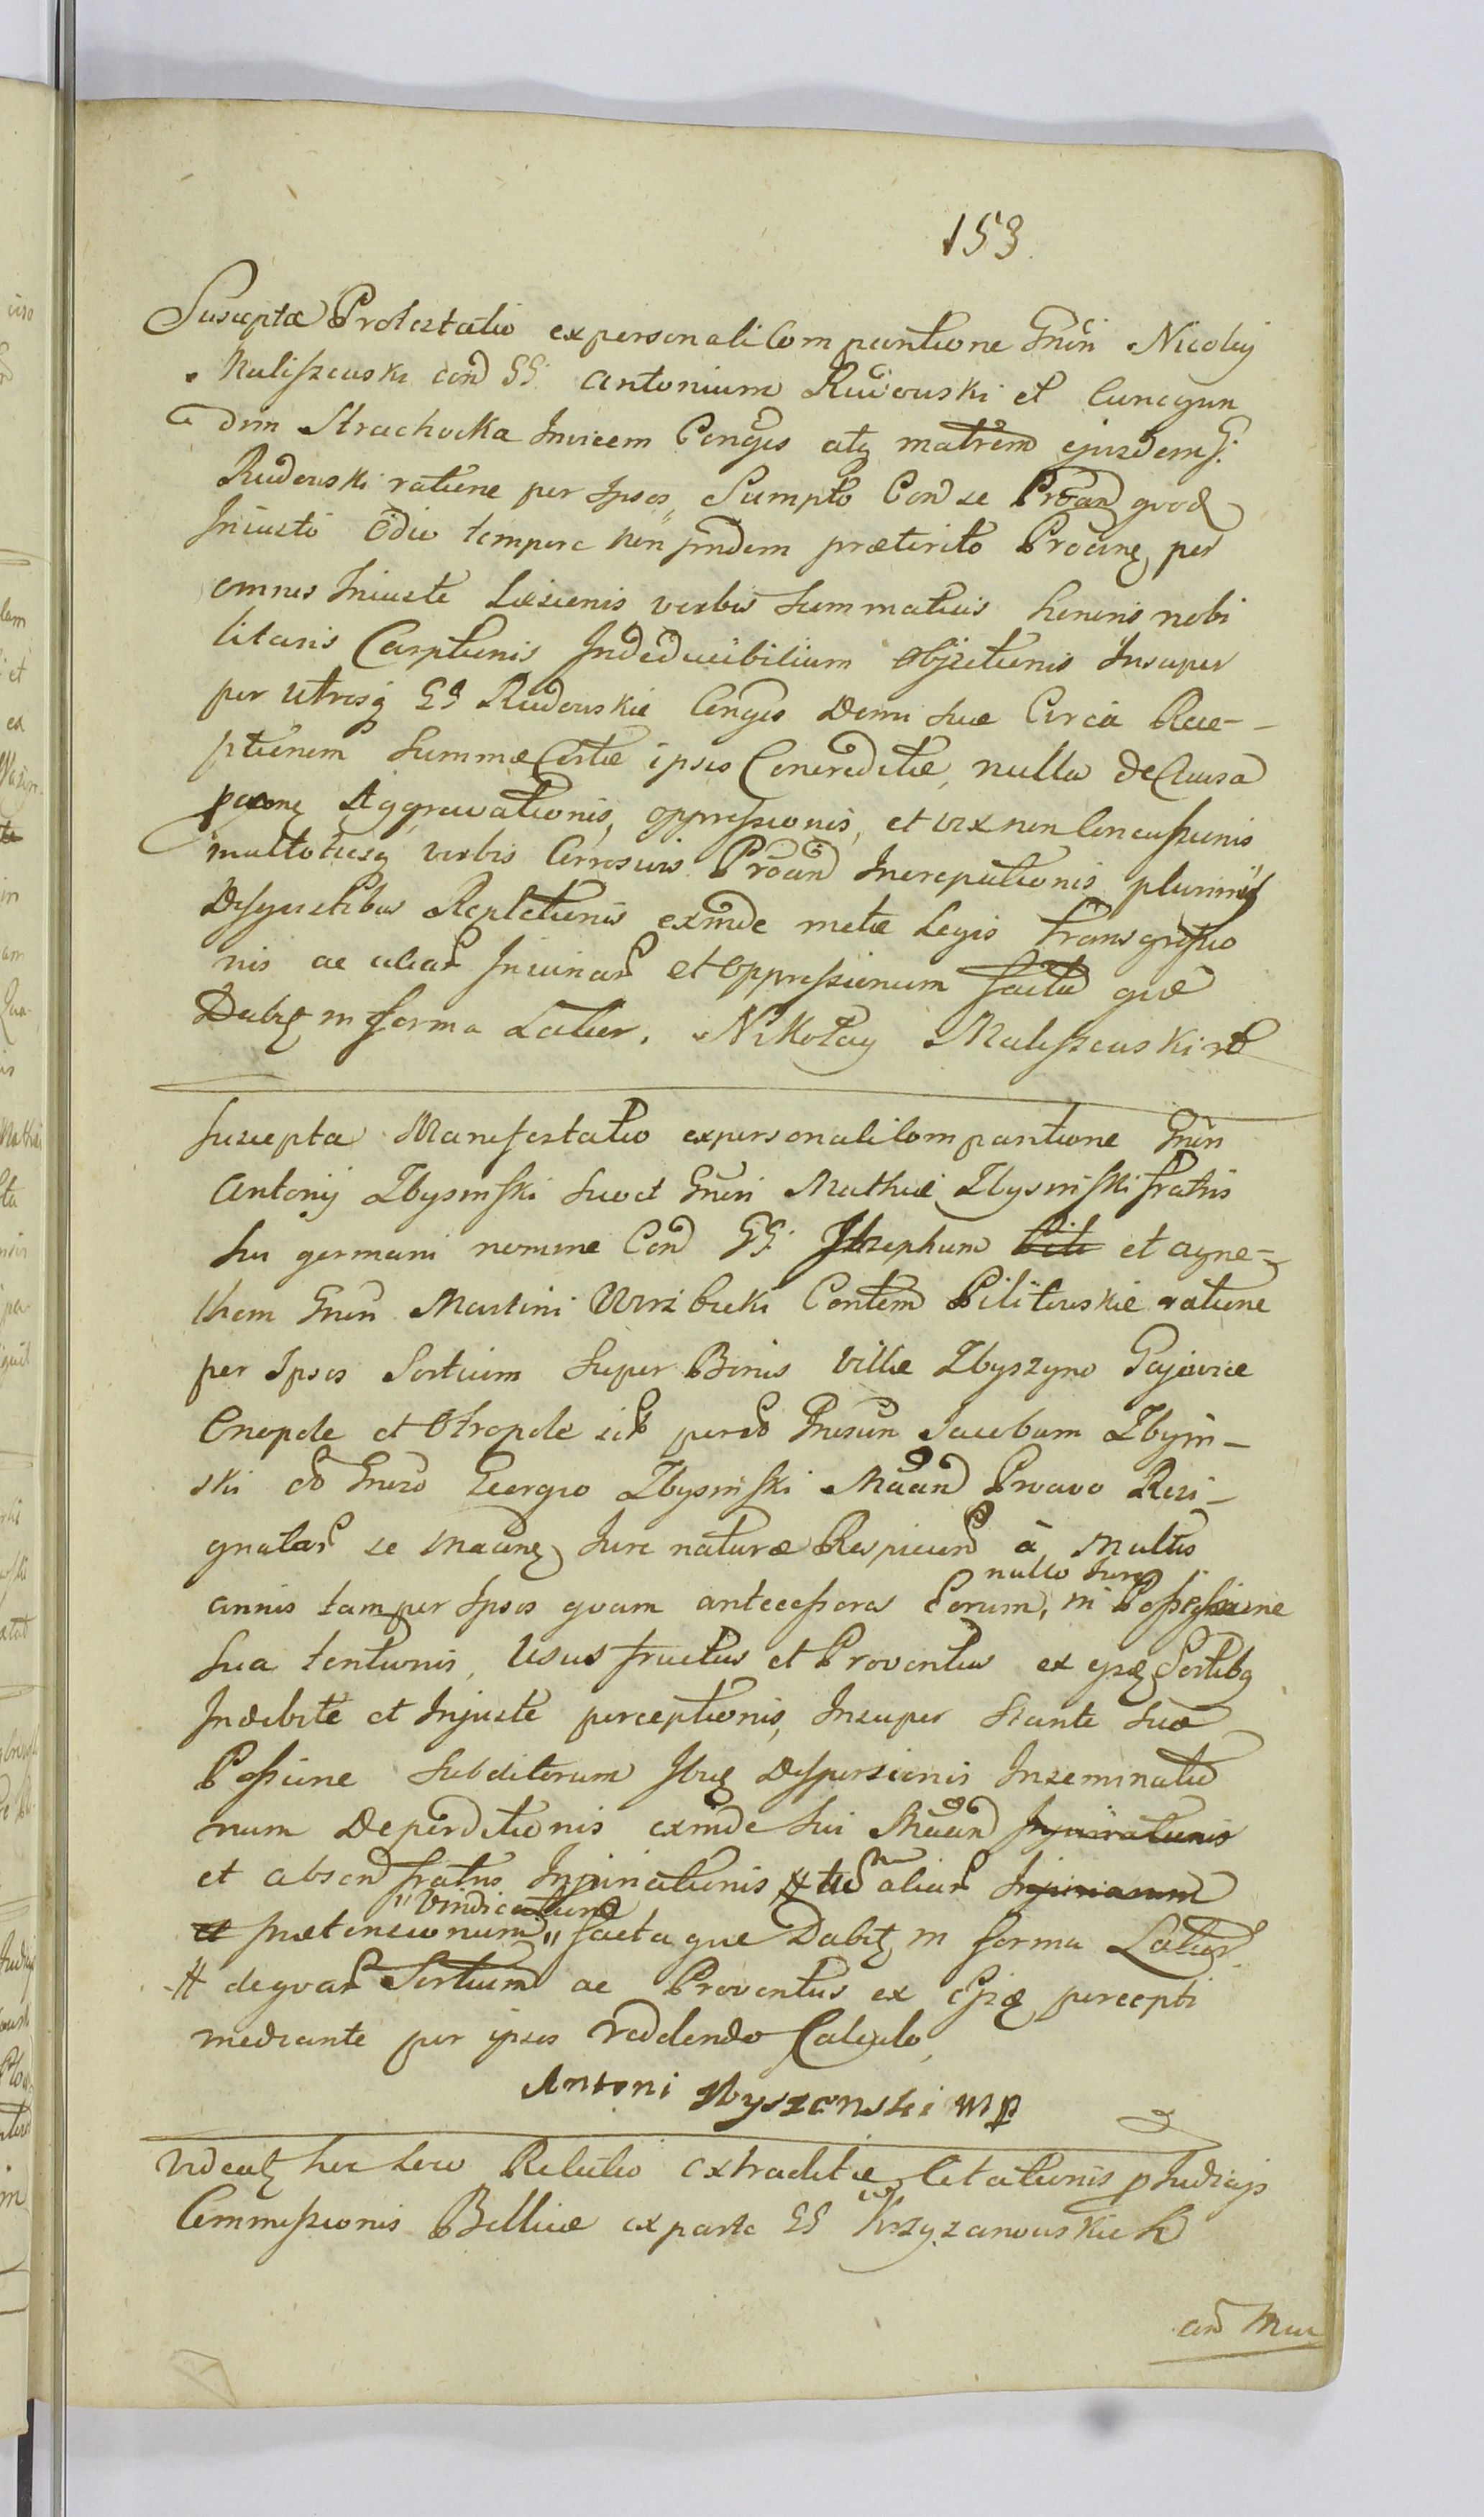 153
Suscepta Protestatio ex personali Comparitione Gnān Nicolaj
Maliszewski con̄d GG: Antonium Rudowski et Cunegun
dim Strachocka Invicem Conges atq̨ matrem ejusdem G:
Rudowski ratione per Ipsos, Sumpto Cond se Proand quod
Iniusti odio tempore non pridem præterito Proanę per
omnes Iniuste Læsionis verbis summativis honoris nobi
litaris Carptionis Indeducibilium objectionis Insuper
per utrosq̨ GG Rudowskie Conges Domi suæ Circa Rece-
ptionem Summæ Certæ ipsis Concreditæ, nulla de Causa
Aggravationis, oppressionis, et vix non Concussionis
multotiesq̨ verbis Corrosivis Proand Increpationis plurimisq̨
Disgustibus Repletionis exinde metæ Legis transgressio
nis ac aliar Iniuriar et Oppressionum facta quæ
Dabit̨ in forma Latior. Nikołay Maliszewski
Suscepta Manifestatio ex personali Comparitione Gnān
Antonij Zbysinski suo et Gnān Mathiæ Zbysinski fratris
sui germani nomine Cond GG: Josephum et Agne-
them Gnān Martini Wierzbicki Contem Pilitowskie ratione
per Ipsos Sortium super Bonis Villæ Zbyszyno Gajewice
Onopole et Otropole sib per Jacobum Zbyin-
ski Georgio Zbysinski Maand Proavo Resi-
gnatar se Maanę Jure naturæ Respicien à Multis
nullo Jure
annis tam per Ipsos quam antecessores Eorum, in Possessione
sua tentionis, Usus fructus et Proventus ex Sortibq̨
Indebite et Injuste perceptionis, Insuper Stante sua
Possione subditorum Dispersionis Inseminatio
num Deperditionis exinde sui Maand Injuriationis
et absen fratris Injuriationis # aliar Injuriarum
" Vindicatione
et prætensionum " facta quæ Dabit̨ in forma Latior
# de quar Sortium ac Proventus ex percepti
mediante per ipsos reddendo Calculo,
Antoni Zbyszenski mp
Videat̨ hic loco Relatio extraditæ Citationis p Judicijs
Commissionis Bellicæ ex parte GG Krzyzanowskich